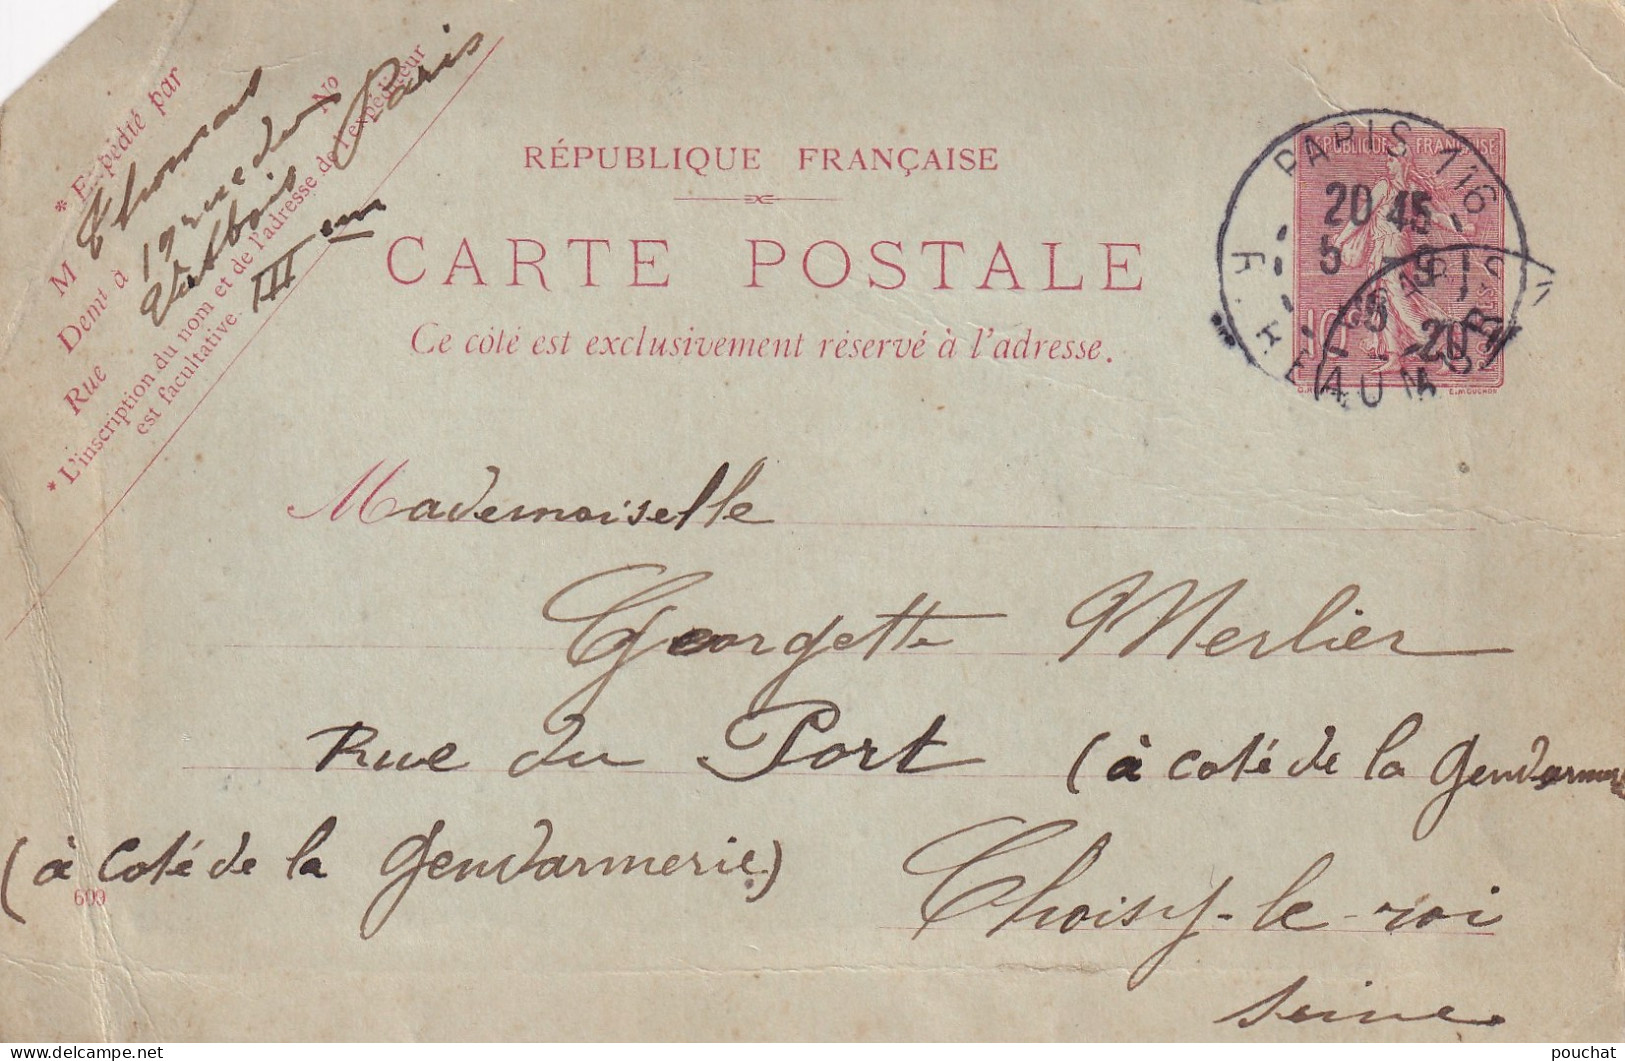 * Expédié par
M Thomas
Demt à 19 rue du
Rue Vertbois Nº Paris
IIIem
* L'inscription du nom et de l'adresse de l'expéditeur
est facultative.
RÉPUBLIQUE FRANÇAISE
CARTE POSTALE
Ce côté est exclusivement réservé à l'adresse.
RÉPUBLIQUE FRANÇAISE
PARIS 116
20 45
5 - 9
R. RÉAUMUR
E. MOUCHON
Mademoiselle
Georgette Merlier
Rue du Port (à coté de la Gendarmer
(à coté de la Gendarmerie.)
Choisy-le-roi
609
Seine
pouchat